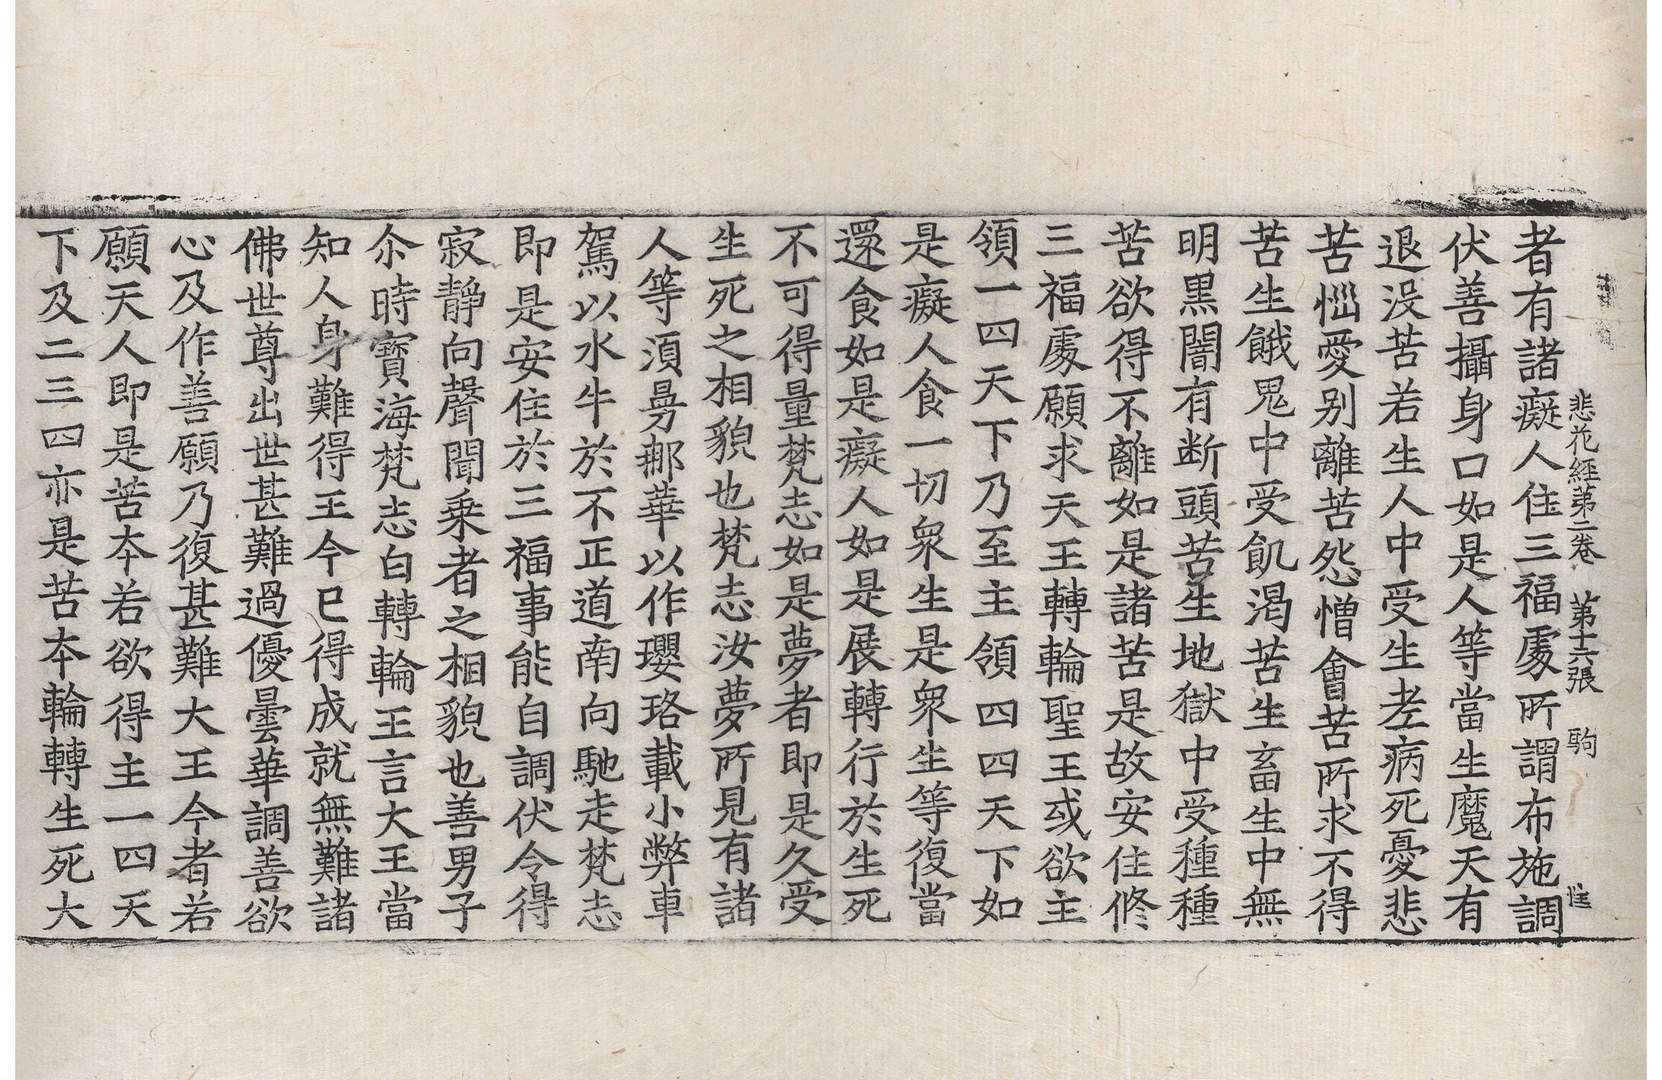 悲花經第二卷 第十六張 駒
者有諸癡人住三福處所謂布施調
伏善攝身口如是人等當生魔天有
退沒苦若生人中受生老病死憂悲
苦惱愛別離苦怨憎會苦所求不得
苦生餓鬼中受飢渴苦生畜生中無
明黑闇有斷頭苦生地獄中受種種
苦欲得不離如是諸苦是故安住修
三福處願求天王轉輪聖王或欲主
領一四天下乃至主領四四天下如
是癡人食一切衆生是衆生等復當
還食如是癡人如是展轉行於生死
不可得量梵志如是夢者即是久受
生死之相貌也梵志汝夢所見有諸
人等須曼那華以作瓔珞載小弊車
駕以水牛於不正道南向馳走梵志
即是安住於三福事能自調伏令得
寂靜向聲聞乘者之相貌也善男子
尒時寶海梵志白轉輪王言大王當
知人身難得王今已得成就無難諸
佛世尊出世甚難過優曇華調善欲
心及作善願乃復甚難大王今者若
願天人即是苦本若欲得主一四天
下及二三四亦是苦本輪轉生死大